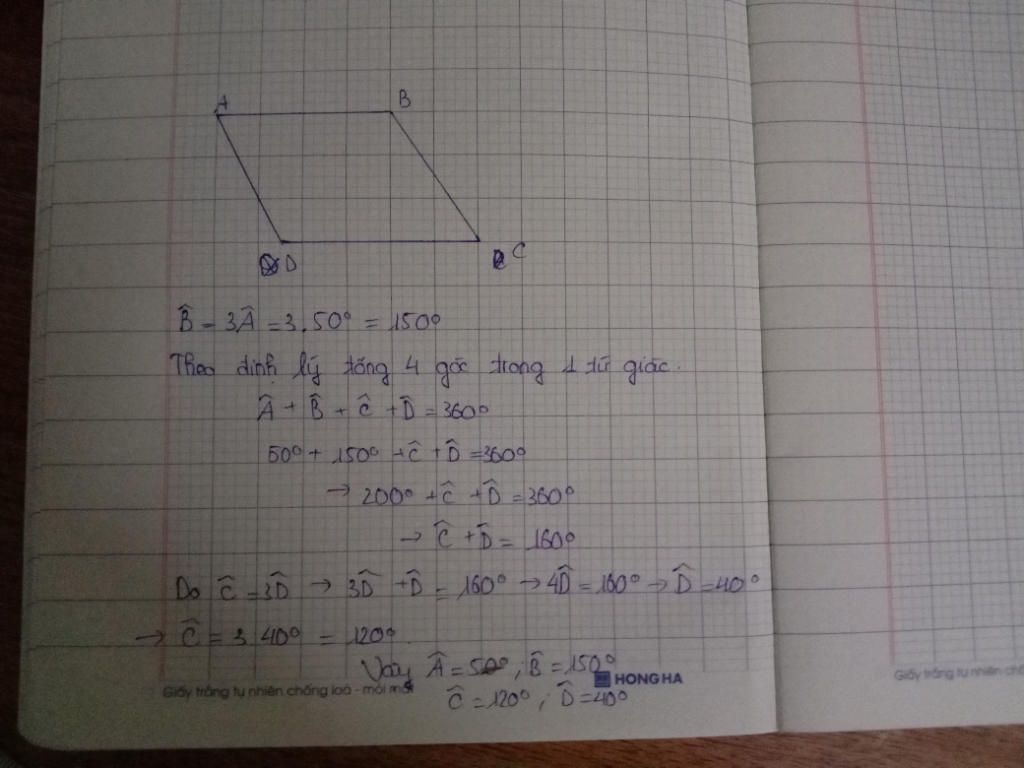 A B
D C
B̂ = 3Â = 3.50° = 150°
Theo định lý tổng 4 góc trong 1 tứ giác.
Â + B̂ + Ĉ + D̂ = 360°
50° + 150° + Ĉ + D̂ = 360°
→ 200° + Ĉ + D̂ = 360°
→ Ĉ + D̂ = 160°
Do Ĉ = 3D̂ → 3D̂ + D̂ = 160° → 4D̂ = 160° → D̂ = 40°
→ Ĉ = 3.40° = 120°.
Vậy Â = 50°; B̂ = 150°
Ĉ = 120°; D̂ = 40°
Giấy trắng tự nhiên chống loá - mỏi mắt
HONG HA
Giấy trắng tự nhiên